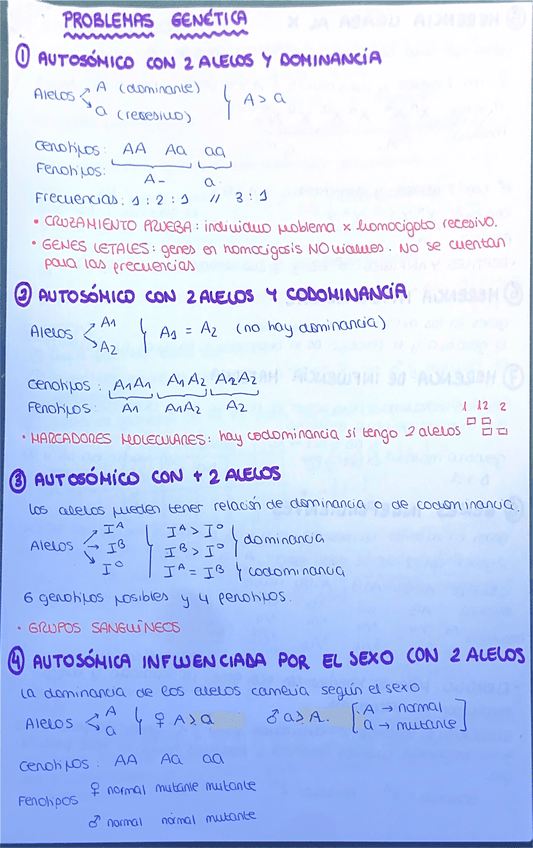 PROBLEMAS GENÉTICA
① AUTOSÓMICO CON 2 ALELOS Y DOMINANCIA
Alelos A (dominante) A > a
a (recesivo)
Genotipos: AA Aa aa
Fenotipos: A- a
Frecuencias: 1:2:1 // 3:1
• CRUZAMIENTO PRUEBA: individuo problema x homocigoto recesivo.
• GENES LETALES: genes en homocigosis NO viables. No se cuentan
para las frecuencias
② AUTOSÓMICO CON 2 ALELOS Y CODOMINANCIA
Alelos A1 A1 = A2 (no hay dominancia)
A2
Genotipos: A1A1 A1A2 A2A2
Fenotipos: A1 A1A2 A2
1 12 2
• MARCADORES MOLECULARES: hay codominancia si tengo 2 alelos
③ AUTOSÓMICO CON + 2 ALELOS
Los alelos pueden tener relación de dominancia o de codominancia.
Alelos → I^A I^A > I^O dominancia
→ I^B I^B > I^O
I^O I^A = I^B codominancia
6 genotipos posibles y 4 fenotipos.
• GRUPOS SANGUÍNEOS
④ AUTOSÓMICA INFLUENCIADA POR EL SEXO CON 2 ALELOS
La dominancia de los alelos cambia según el sexo
Alelos A ♀ A > a ♂ a > A. [A → normal
a a → mutante]
Genotipos: AA Aa aa
Fenotipos ♀ normal mutante mutante
♂ normal normal mutante